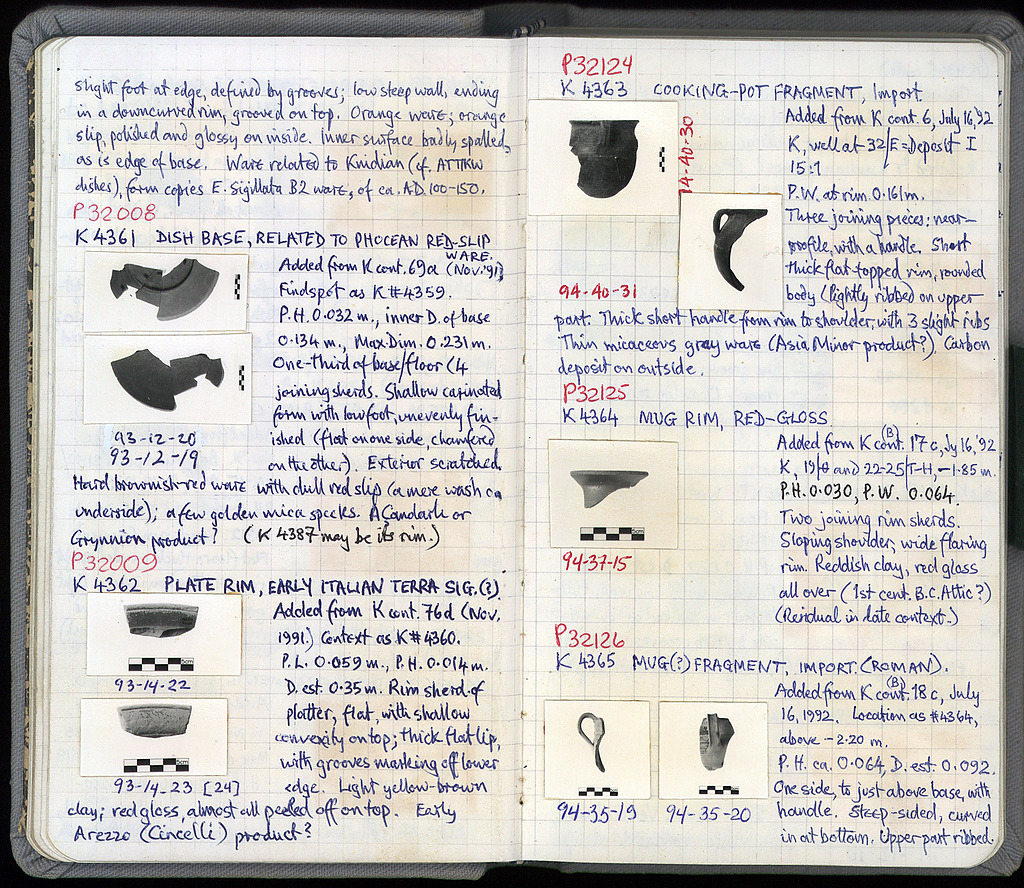 slight foot at edge, defined by grooves; low steep wall, ending
in a downcurved rim, grooved on top. Orange ware; orange
slip, polished and glossy on inside. Inner surface badly spalled,
as is edge of base. Ware related to Knidian (cf. ATTKW
dishes), form copies E. Sigillata B2 ware, of ca. A.D. 100-150.
P32008
K 4361 DISH BASE, RELATED TO PHOCEAN RED-SLIP
WARE.
Added from K cont. 69a (Nov. '91)
Findspot as K #4359.
P.H. 0.032 m., inner D. of base
0.134 m., Max. Dim. 0.231 m.
One-Third of base/floor (4
joining sherds. Shallow carinated
form with low foot, unevenly fin-
ished (flat on one side, chamfered
on the other). Exterior scratched.
93-12-20
93-12-19
Hard brownish-red ware with dull red slip (a mere wash on
underside); a few golden mica specks. A Çandarlı or
Grynnion product? (K 4387 may be its rim.)
P32009
K 4362 PLATE RIM, EARLY ITALIAN TERRA SIG.(?)
Added from K cont. 76d (Nov.
1991.) Context as K #4360.
P.L. 0.059 m., P.H. 0.014 m.
D. est. 0.35 m. Rim sherd of
platter, flat, with shallow
convexity on top; thick flat lip,
with grooves marking off lower
edge. Light yellow-brown
5cm
93-14-22
5cm
93-14-23 [24]
clay; red gloss, almost all peeled off on top. Early
Arezzo (Cincelli) product?
P32124
K 4363 COOKING-POT FRAGMENT, Import.
94-40-30
Added from K cont. 6, July 16, '92
K, well at 32/E = Deposit I
15:1
P.W. at rim 0.161 m.
Three joining pieces: near-
profile, with a handle. Short
thick flat-topped rim, rounded
body (lightly ribbed on upper
94-40-31
part. Thick short handle from rim to shoulder, with 3 slight ribs
Thin micaceous gray ware (Asia Minor product?). Carbon
deposit on outside.
P32125
K 4364 MUG RIM, RED-GLOSS
(B)
Added from K cont. 17c, Jy 16, '92
K, 19/Θ and 22-25/T-H, -1.85 m.
P.H. 0.030, P.W. 0.064.
Two joining rim sherds.
Sloping shoulder, wide flaring
rim. Reddish clay, red gloss
all over (1st cent. B.C. Attic?)
(Residual in late context.)
5cm
94-37-15
P32126
K 4365 MUG(?) FRAGMENT, IMPORT. (ROMAN).
(B)
Added from K cont. 18c, July
16, 1992. Location as #4364,
above -2.20 m.
P.H. ca. 0.064, D. est. 0.092.
One side, to just above base, with
handle. Steep-sided, curved
in at bottom. Upper part ribbed.
94-35-19 94-35-20